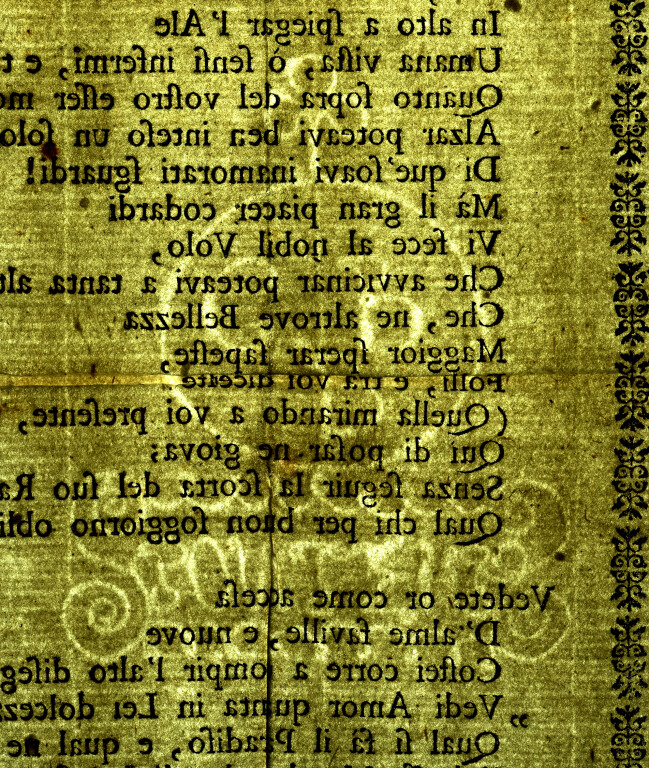 In alto a ſpiegar l'Ale
Umana viſta, ò ſenſi infermi, e t
Quanto ſopra del voſtro eſſer mo
Alzar poteavi ben inteſo un ſolo
Di que' ſoavi inamorati ſguardi!
Mà il gran piacer codardi
Vi fece al nobil Volo,
Che avvicinar poteavi a tanta alt
Che, ne altrove Bellezza
Maggior ſperar ſapeſte,
Folli, e trà voi diceſte
(Quella mirando a voi preſente,
Qui di poſar ne giova;
Senza ſeguir la ſcorta del ſuo Ra
Qual chi per buon ſoggiorno obli
Vedete or come acceſa
D'alme faville, e nuove
Coſtei corre a compir l'alto diſeg
„ Vedi Amor quanta in Lei dolcez
Qual ſi fà il Paradiſo, e qual ne